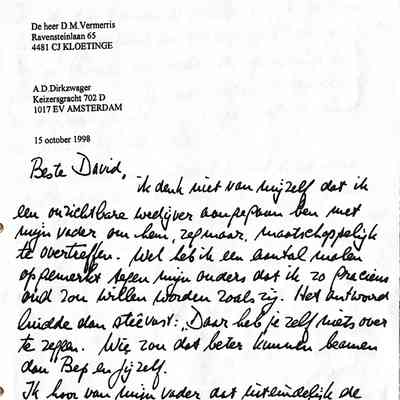 De heer D.M.Vermerris
Ravensteinlaan 65
4481 CJ KLOETINGE
A.D.Dirkzwager
Keizersgracht 702 D
1017 EV AMSTERDAM
15 october 1998
Beste David,
ik denk niet van mijzelf dat ik
een onzichtbare wedijver aangegaan ben met
mijn vader om hem, zegmaar, maatschappelijk
te overtreffen. Wel heb ik een aantal malen
opgemerkt tegen mijn ouders dat ik zo
oud zou willen worden zoals zij. Het antwoord
luidde dan steevast: "Daar heb je zelf niets over
te zeggen. Wie zou dat beter kunnen beamen
dan Bep en jijzelf.
Ik hoor van mijn vader dat uiteindelijk de